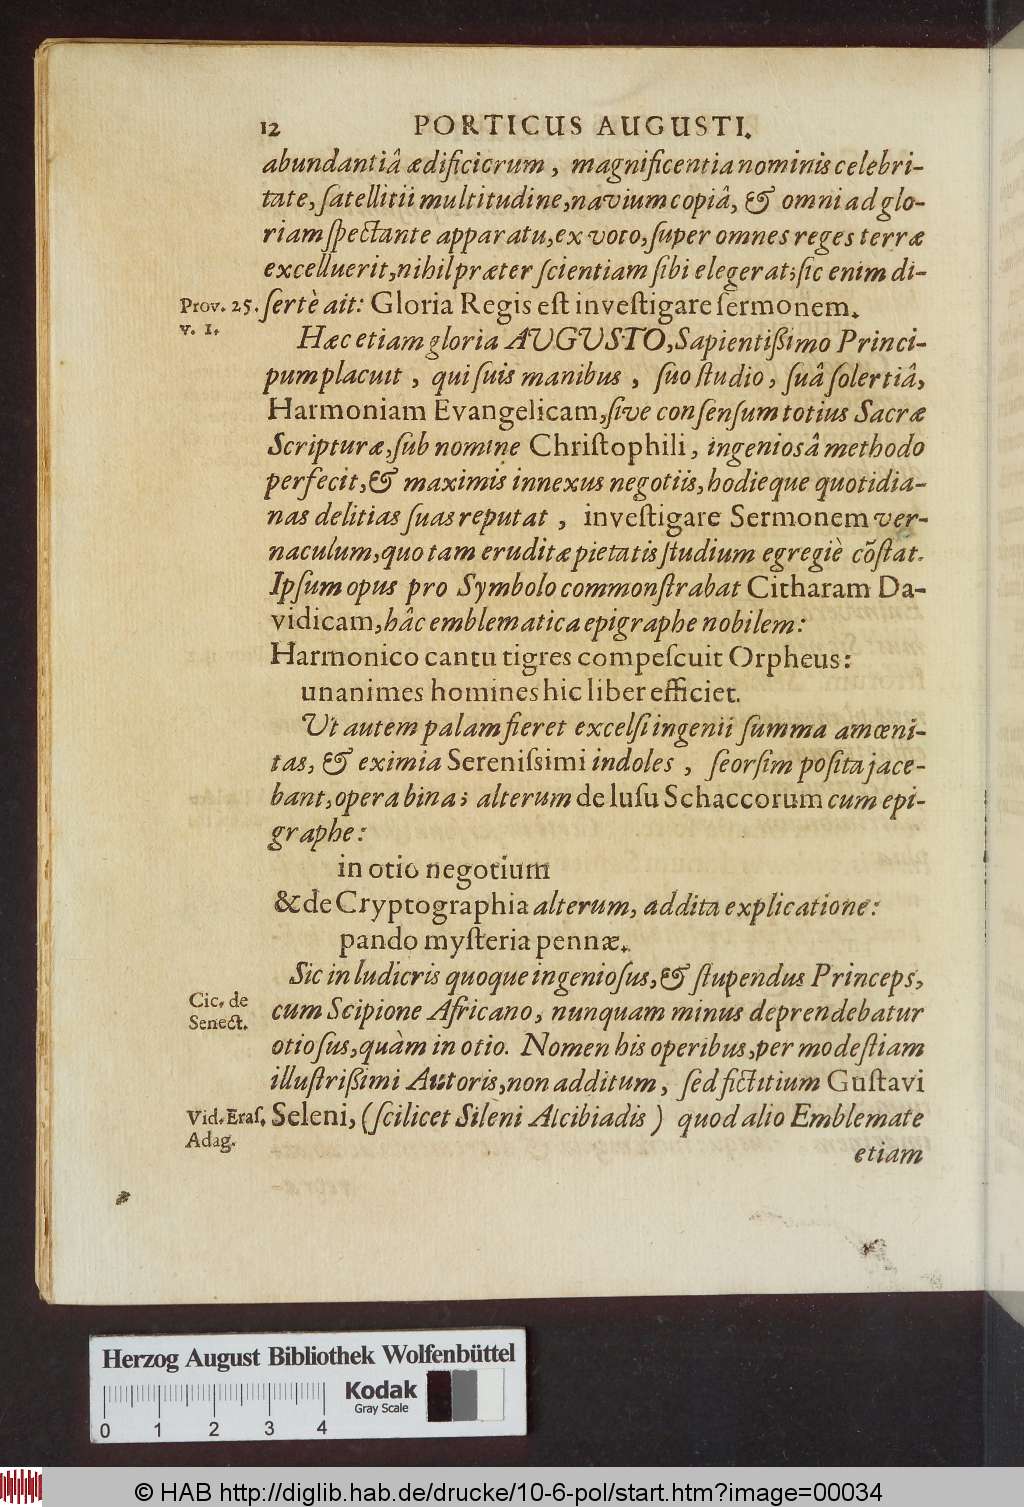 12 PORTICUS AUGUSTI.
abundantiâ ædificicrum, magnificentia nominis celebri-
tate, ſatellitii multitudine, navium copiâ, & omni ad glo-
riam ſpectante apparatu, ex voto, ſuper omnes reges terræ
excelluerit, nihil præter ſcientiam ſibi elegerat; ſic enim di-
Prov. 25. ſertè ait: Gloria Regis eſt inveſtigare ſermonem.
v. 1.
Hæc etiam gloria AUGUSTO, Sapientißimo Princi-
pum placuit, qui ſuis manibus, ſuo ſtudio, ſuâ ſolertiâ,
Harmoniam Evangelicam, ſive conſenſum totius Sacræ
Scripturæ, ſub nomine Chriſtophili, ingenioſâ methodo
perfecit, & maximis innexus negotiis, hodieque quotidia-
nas delitias ſuas reputat, inveſtigare Sermonem ver-
naculum, quo tam eruditæ pietatis ſtudium egregiè cõſtat.
Ipſum opus pro Symbolo commonſtrabat Citharam Da-
vidicam, hâc emblematica epigraphe nobilem:
Harmonico cantu tigres compeſcuit Orpheus:
unanimes homines hic liber efficiet.
Ut autem palam fieret excelſi ingenii ſumma amœni-
tas, & eximia Sereniſsimi indoles, ſeorſim poſita jace-
bant, opera bina; alterum de luſu Schaccorum cum epi-
graphe:
in otio negotium
& de Cryptographia alterum, addita explicatione:
pando myſteria pennæ.
Sic in ludicris quoque ingenioſus, & ſtupendus Princeps,
Cic. de
Senect.
cum Scipione Africano, nunquam minus deprendebatur
otioſus, quàm in otio. Nomen his operibus, per modeſtiam
illuſtrißimi Autoris, non additum, ſed fictitium Guſtavi
Vid. Eraſ.
Adag.
Seleni, (ſcilicet Sileni Alcibiadis) quod alio Emblemate
etiam
Herzog August Bibliothek Wolfenbüttel
Kodak
Gray Scale
0 1 2 3 4
© HAB http://diglib.hab.de/drucke/10-6-pol/start.htm?image=00034